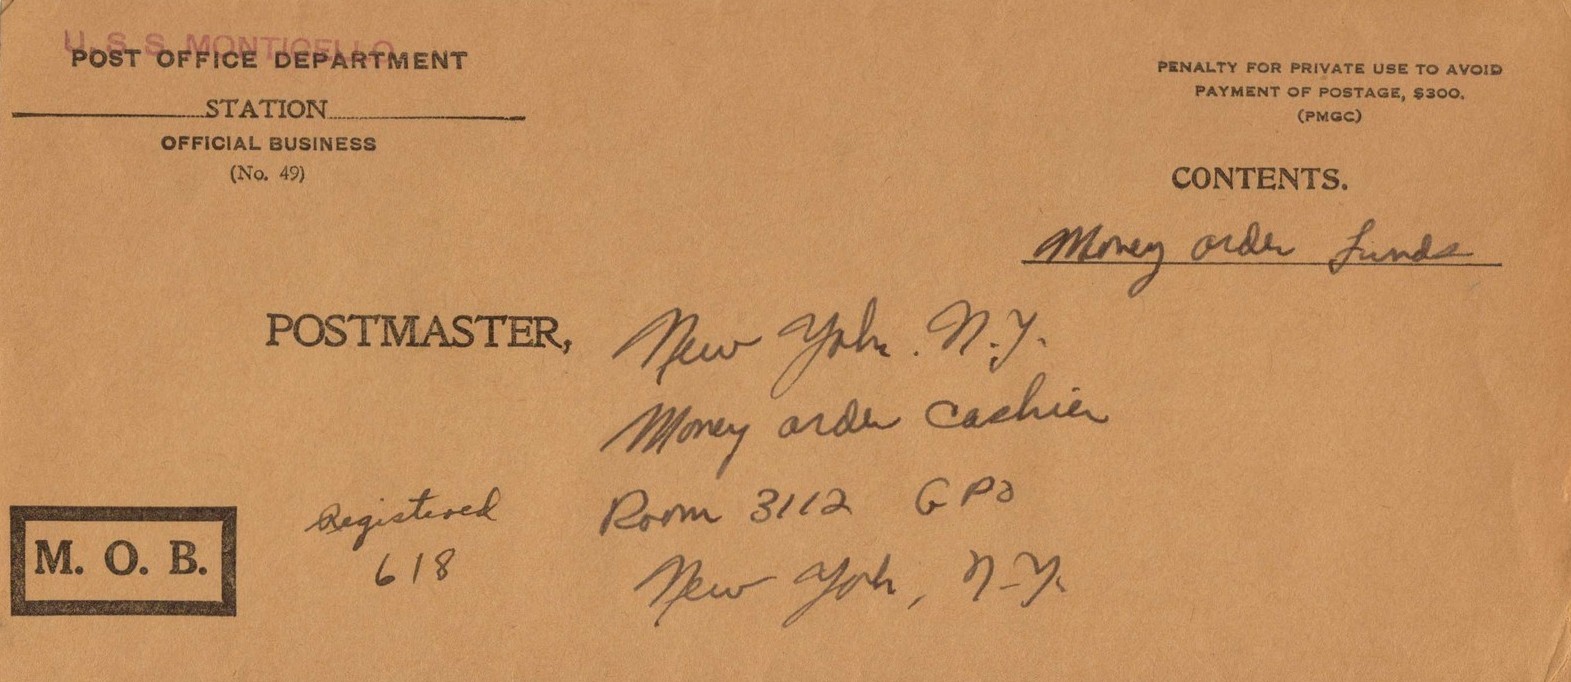 U. S. S. MONTICELLO
POST OFFICE DEPARTMENT
STATION
OFFICIAL BUSINESS
(No. 49)
PENALTY FOR PRIVATE USE TO AVOID
PAYMENT OF POSTAGE, $300.
(PMGC)
CONTENTS.
Money order Funds
POSTMASTER, New York. N.Y.
Money order Cashier
Room 3112 GPO
New York, N-Y.
Registered
618
M. O. B.